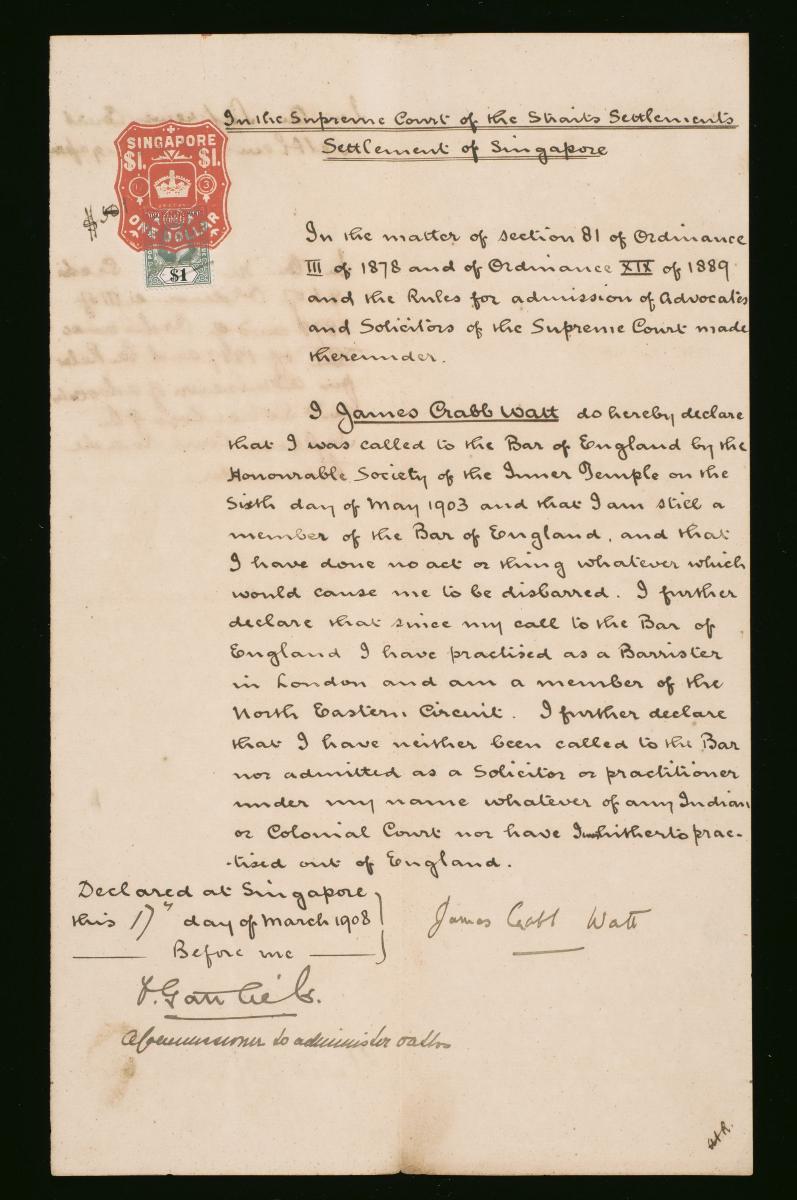 In the Supreme Court of the Straits Settlements
Settlement of Singapore
SINGAPORE
$1. $1.
3
ONE DOLLAR
$1
In the matter of section 81 of Ordinance
III of 1878 and of Ordinance XIX of 1889
and the Rules for admission of Advocates
and Solicitors of the Supreme Court made
thereunder.
I James Crabb Watt do hereby declare
that I was called to the Bar of England by the
Honourable Society of the Inner Temple on the
Sixth day of May 1903 and that I am still a
member of the Bar of England, and that
I have done no act or thing whatever which
would cause me to be disbarred. I further
declare that since my call to the Bar of
England I have practised as a Barrister
in London and am a member of the
North Eastern Circuit. I further declare
that I have neither been called to the Bar
nor admitted as a Solicitor or practitioner
under my name whatever of any Indian
or Colonial Court nor have I hitherto prac-
-tised out of England.
Declared at Singapore
this 17" day of March 1908
Before me
James Crabb Watt
A Commissioner to administer oaths